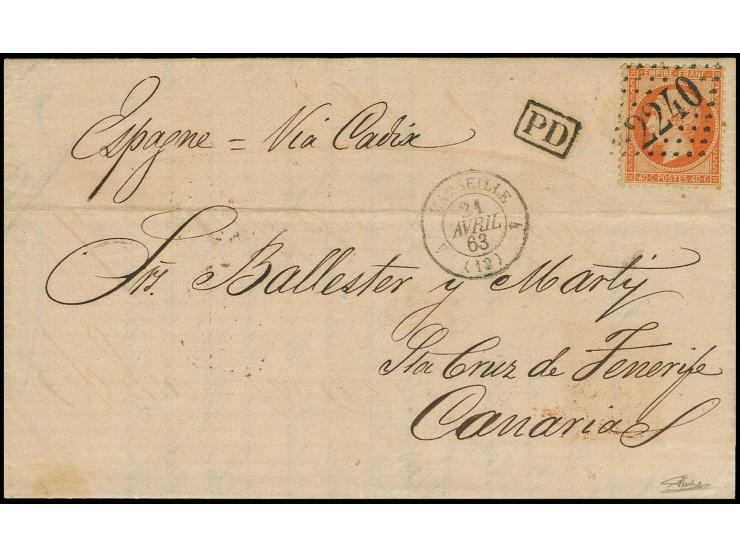 EMPIRE FRANC
2240
40-C POSTES 40-C
PD
Espagne = Via Cadix
MARSEILLE
21
AVRIL
63
(12)
Srs. Ballester y Marty
Sta Cruz de Tenerife
Canarias